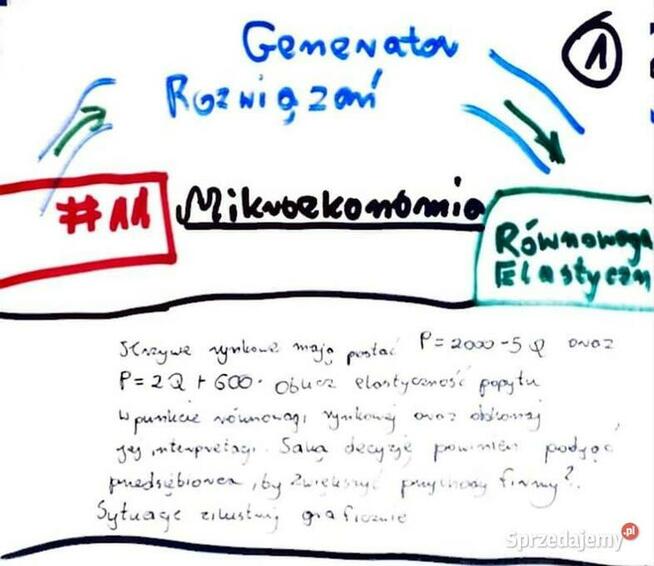 Generator
Rozwiązań
1
#11
Mikroekonomia
Równowaga
Elastyczn
Krzywe rynkowe mają postać P=2000-5Q oraz
P=2Q+600. Oblicz elastyczność popytu
w punkcie równowagi rynkowej oraz dokonaj
jej interpretacji. Jaką decyzję powinien podjąć
przedsiębiorca, by zwiększyć przychody firmy?
Sytuację zilustruj graficznie
Sprzedajemy.pl